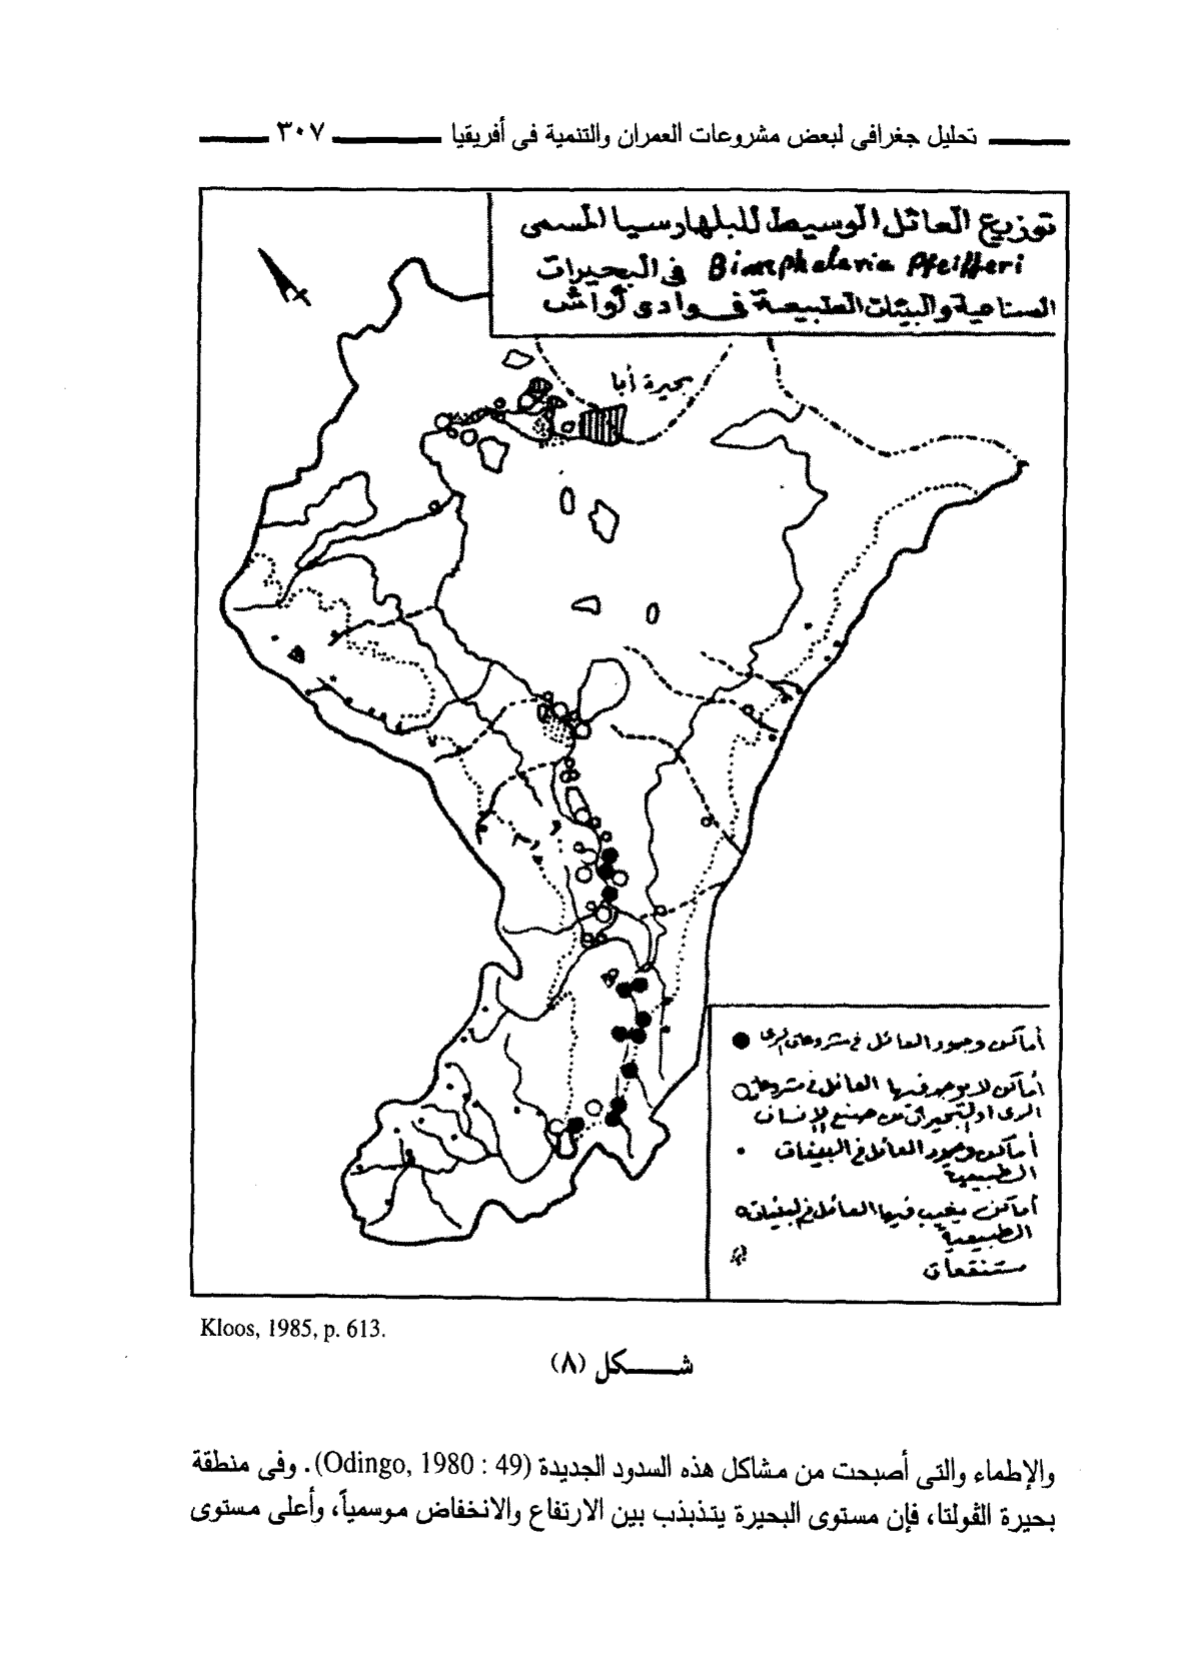 تحليل جغرافى لبعض مشروعات العمران والتنمية فى أفريقيا ٣٠٧
توزيع العائل الوسيط للبلهارسيا المسمى
Biomphalaria Pfeifferi فى البحيرات
الصناعية والبيئات الطبيعية فى وادى أواش
بحيرة أبا
أماكن وجود العائل فى مشروعات الرى
أماكن لا يوجد فيها العائل فى مشروعات
الرى او البحيرات من صنع الإنسان
أماكن وجود العائل فى البيئات
الطبيعية
أماكن يغيب فيها العائل فى البيئات
الطبيعية
مستنقعات
Kloos, 1985, p. 613.
شكل (٨)
والإطماء والتى أصبحت من مشاكل هذه السدود الجديدة (Odingo, 1980 : 49). وفى منطقة
بحيرة الڤولتا، فإن مستوى البحيرة يتذبذب بين الارتفاع والانخفاض موسمياً، وأعلى مستوى